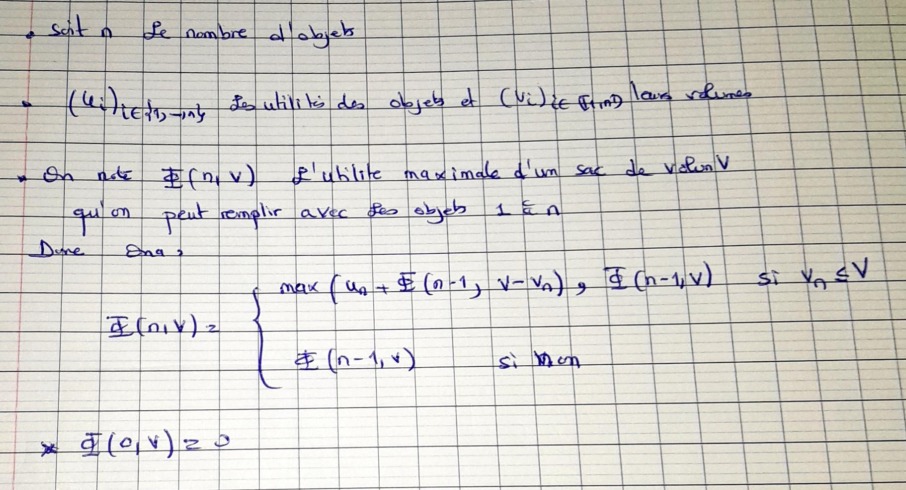 • soit n le nombre d'objets
• (ui)i∈{1,→,n} les utilités des objets et (vi)i∈⟦1,n⟧ leurs volumes
• On note Φ(n,V) l'utilite maximale d'un sac de volum V
qu'on peut remplir avec les objets 1 à n
Donc Ona,
Φ(n,V) = { max (un + Φ(n-1, V-vn), Φ(n-1,V) si vn ≤ V
Φ(n-1,V) si non
* Φ(0,V) = 0